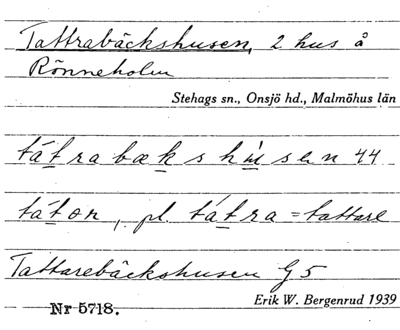 Tattrabäckshusen, 2 hus å
Rönneholm
Stehags sn., Onsjö hd., Malmöhus län
tátrabæks hùsen 44
táton, pl. tátra = tattare
Tattarebäckshusen G5
Erik W. Bergenrud 1939
Nr 5718.